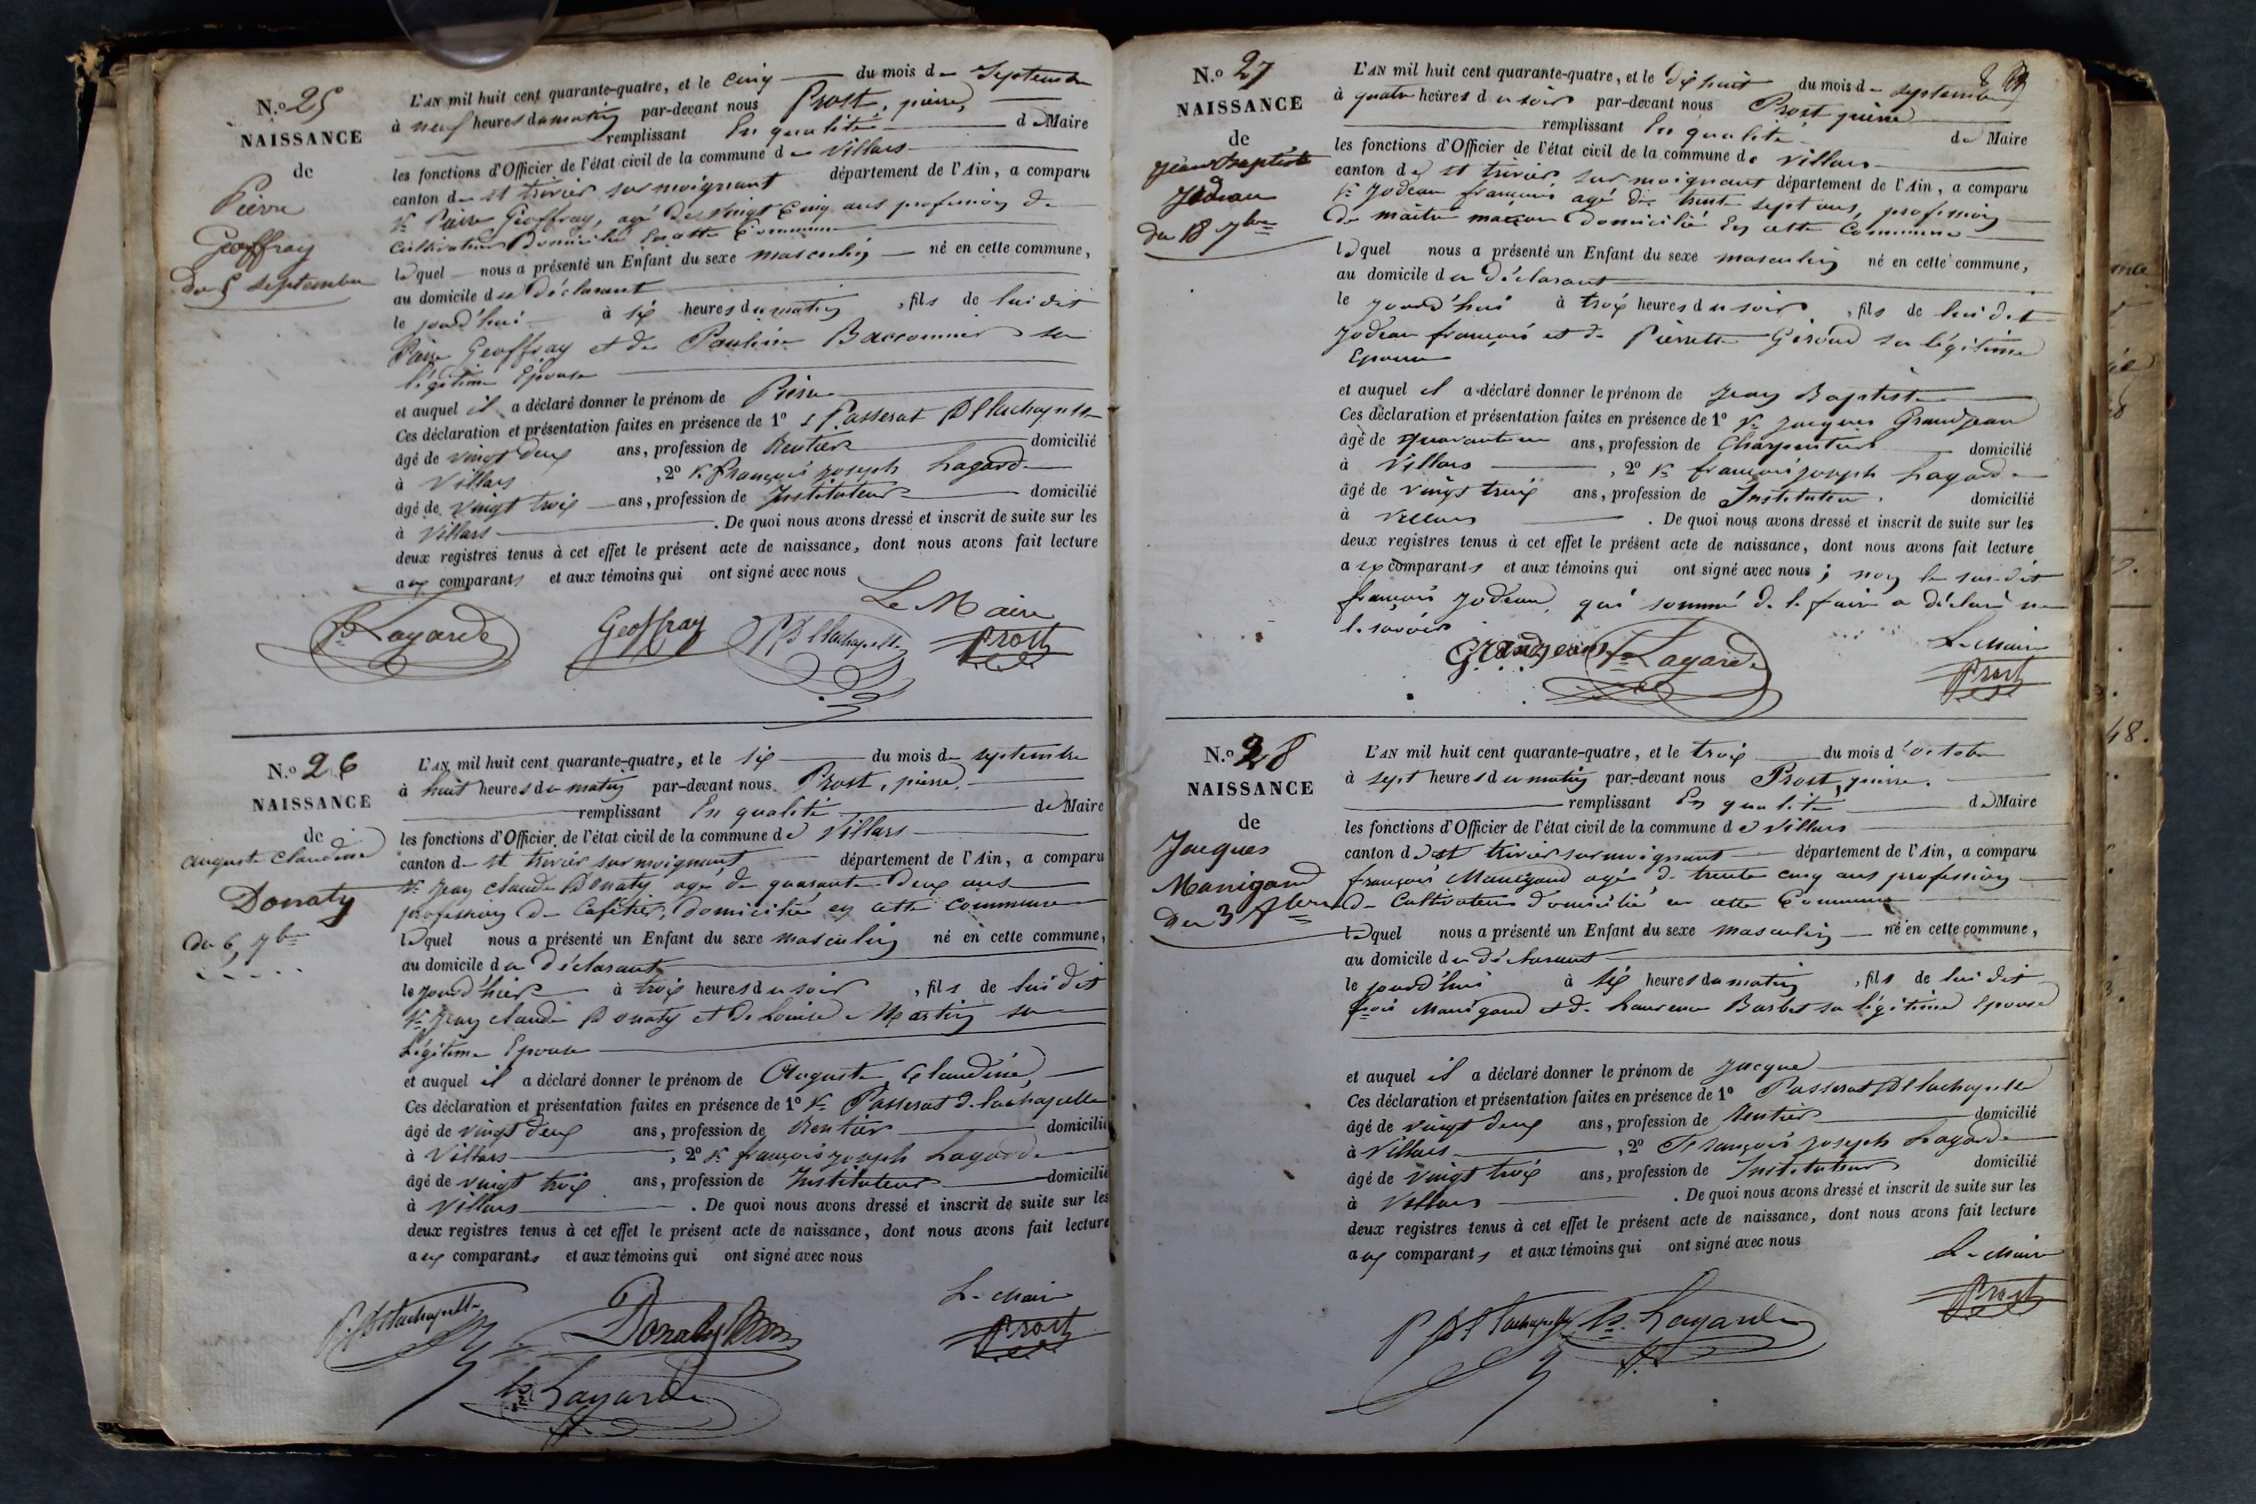 N.o 25
NAISSANCE
de
Pierre
Geoffray
du 5 septembre
L'AN mil huit cent quarante-quatre, et le cinq du mois de Septembre
à neuf heures du matin par-devant nous Prost, pierre,
remplissant En qualité de Maire
les fonctions d'Officier de l'état civil de la commune de Villars
canton de st trivier sur moignant département de l'Ain, a comparu
sr Paire Geoffray, agé de vingt cinq ans profession de
cultivateur Domicilié En cette Commune
lequel nous a présenté un Enfant du sexe masculin né en cette commune,
au domicile du déclarant
le jourd'hui à six heures du matin, fils de lui dit
Paire Geoffray et de Pauline Baccomnier sa
légitime Epouse
et auquel il a déclaré donner le prénom de Pierre
Ces déclaration et présentation faites en présence de 1º s Passerat Dllachapelle
âgé de vingt deux ans, profession de Rentier domicilié
à Villars, 2º sr François joseph Lagarde
âgé de vingt trois ans, profession de Instituteur domicilié
à Villars. De quoi nous avons dressé et inscrit de suite sur les
deux registres tenus à cet effet le présent acte de naissance, dont nous avons fait lecture
aux comparants et aux témoins qui ont signé avec nous
Le Maire
Lagarde Geoffray P Dllachapelle Prost
N.o 26
NAISSANCE
de
auguste claudine
Donaty
du 6, 7bre
L'AN mil huit cent quarante-quatre, et le six du mois de septembre
à huit heures du matin par-devant nous Prost, pierre,
remplissant En qualité de Maire
les fonctions d'Officier de l'état civil de la commune de Villars
canton de st trivier sur moignant, département de l'Ain, a comparu
sr jean claude Donaty agé de quarante deux ans
profession de Cafetier, domicilié en cette commune
lequel nous a présenté un Enfant du sexe masculin né en cette commune,
au domicile du déclarant
le jourd'hier à trois heures du soir, fils de lui dit
sr jean claude Donaty et de Louise Martin sa
Légitime Epouse
et auquel il a déclaré donner le prénom de Auguste Claudine,
Ces déclaration et présentation faites en présence de 1º sr Passerat d. lachapelle
âgé de vingt deux ans, profession de Rentier domicilié
à Villars, 2º sr françois joseph Lagarde
âgé de vingt trois ans, profession de Instituteur domicilié
à Villars. De quoi nous avons dressé et inscrit de suite sur les
deux registres tenus à cet effet le présent acte de naissance, dont nous avons fait lecture
aux comparants et aux témoins qui ont signé avec nous
Le Maire
P. Dllachapelle Donaty Prost
Lagarde
N.o 27
NAISSANCE
de
jean baptiste
Jodeau
du 18 7bre
L'AN mil huit cent quarante-quatre, et le dix huit du mois de septembre
à quatre heures du soir par-devant nous Prost pierre
remplissant En qualité de Maire
les fonctions d'Officier de l'état civil de la commune de Villars
canton de st trivier sur moignant département de l'Ain, a comparu
sr jodeau françois agé de trente sept ans, profession
de maître maçon domicilié En cette Commune
lequel nous a présenté un Enfant du sexe masculin né en cette commune,
au domicile du déclarant
le jourd'hui à trois heures du soir, fils de lui dit
jodeau françois et de Pierrette Giroud sa légitime
Epouse
et auquel il a déclaré donner le prénom de jean Baptiste
Ces déclaration et présentation faites en présence de 1º sr jacques Grandjean
âgé de quarante un ans, profession de Charpentier domicilié
à Villars, 2º sr françois joseph Lagarde
âgé de vingt trois ans, profession de Instituteur. domicilié
à Villars. De quoi nous avons dressé et inscrit de suite sur les
deux registres tenus à cet effet le présent acte de naissance, dont nous avons fait lecture
aux comparants et aux témoins qui ont signé avec nous; non le sus-dit
françois jodeau, qui sommé de le faire a déclaré ne
le savoir
Le Maire
Grandjean Lagarde Prost
N.o 28
NAISSANCE
de
Jacques
Manigand
du 3 8bre
L'AN mil huit cent quarante-quatre, et le trois du mois d'octobre
à sept heures du matin par-devant nous Prost, pierre.
remplissant En qualité de Maire
les fonctions d'Officier de l'état civil de la commune de Villars
canton de st trivier sur moignant département de l'Ain, a comparu
françois Manigand agé de trente cinq ans profession
de Cultivateur domicilié en cette Commune
lequel nous a présenté un Enfant du sexe masculin né en cette commune,
au domicile du déclarant
le jourd'hui à six heures du matin, fils de lui dit
fçois Manigand et de Laurence Barbet sa légitime Epouse
et auquel il a déclaré donner le prénom de jacque
Ces déclaration et présentation faites en présence de 1º Passerat Dllachapelle
âgé de vingt deux ans, profession de Rentier domicilié
à Villars, 2º François joseph Lagarde
âgé de vingt trois ans, profession de Instituteur domicilié
à Villars. De quoi nous avons dressé et inscrit de suite sur les
deux registres tenus à cet effet le présent acte de naissance, dont nous avons fait lecture
aux comparants et aux témoins qui ont signé avec nous
Le Maire
P Dllachapelle Lagarde Prost